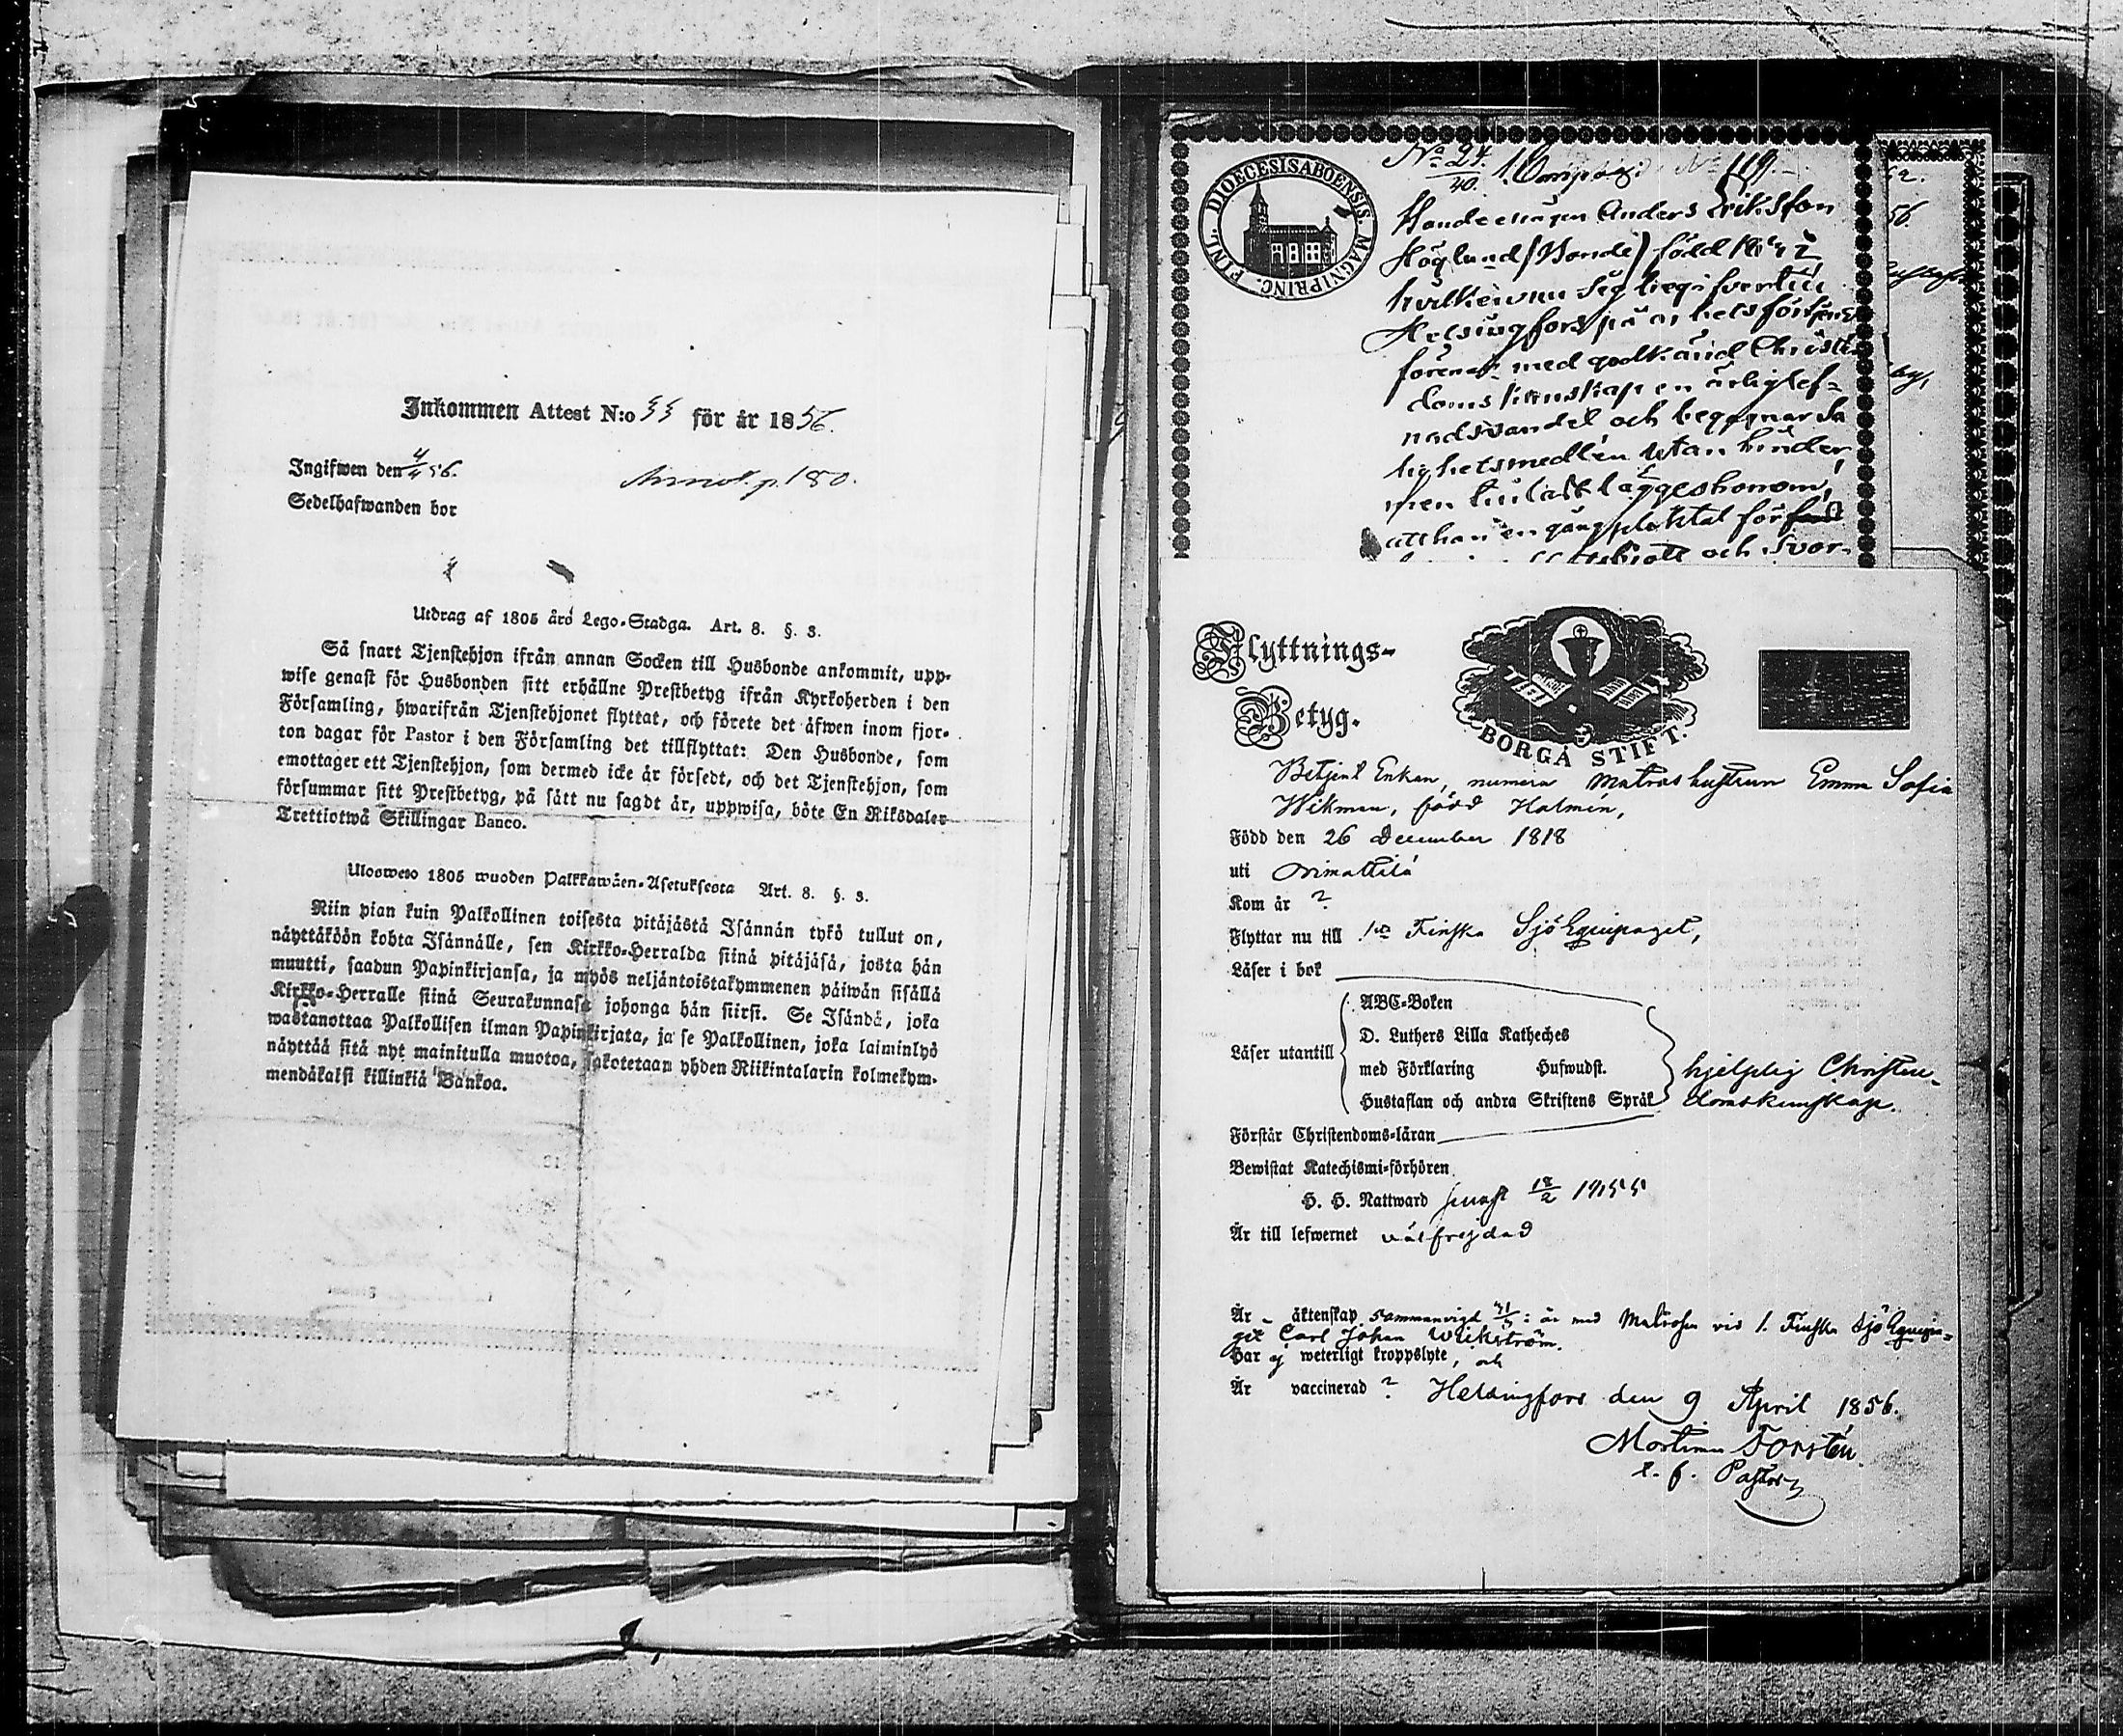 Inkommen Attest N:o 33 för år 1856.
Ingifwen den 4/4 56.
p. 180.
Sedelhafwanden bor
Utdrag af 1805 års Lego-Stadga. Art. 8. §. 3.
Så snart Tjenstehjon ifrån annan Socken till Husbonde ankommit, upp-
wise genast för Husbonden sitt erhållne Prestbetyg ifrån Kyrkoherden i den
Församling, hwarifrån Tjenstehjonet flyttat, och förete det äfwen inom fjor-
ton dagar för Pastor i den Församling det tillflyttat: Den Husbonde, som
emottager ett Tjenstehjon, som dermed icke är försedt, och det Tjenstehjon, som
försummar sitt Prestbetyg, på sätt nu sagdt är, uppwisa, böte En Riksdaler
Trettiotwå Skillingar Banco.
Uloswes 1805 wuoden Palkkawäen-Asetuksesta Art. 8. §. 3.
Niin pian kuin Palkollinen toisesta pitäjästä Isännän tykö tullut on,
näyttäköön kohta Isännälle, sen Kirkko-Herralda siinä pitäjäsä, josta hän
muutti, saadun Papinkirjansa, ja myös neljäntoistakymmenen päiwän sisällä
Kirkko-Herralle siinä Seurakunnasa johonga hän siirsi. Se Isändä, joka
wastanottaa Palkollisen ilman Papinkirjata, ja se Palkollinen, joka laiminlyö
näyttää sitä nyt mainitulla muotoa, sakotetaan yhden Riikintalarin kolmekym-
mendäkaksi killinkiä Bankoa.
FINL. DIOECESIS ABOENSIS. MAGNI PRINC.
No 24. No 119.
40.
Anders Eriksson
Höglund (Bonde) född
hvilken nu sig begifver till
Helsingfors på arbetsförtjenst
förenar med godkänd Christen
doms kunskap en ärlig lef-
nadsvandel och begagnar sa
lighetsmedlen utan hinder,
men honom,
att han en gång pliktat för
och svor-
Flyttnings-
Betyg.
BORGÅ STIFT.
Betjent Enkan, numera Matroshustrun Emma Sofia
Wikman, född Halmén,
Född den 26 December 1818
uti Orimattila
Kom år ?
Flyttar nu till 1sta Finska SjöEquipaget,
Läser i bok
Läser utantill
ABC-Boken
D. Luthers Lilla Katheches
med Förklaring Hufwudst.
Hustaflan och andra Skriftens Språk
hjelplig Christen-
domskunskap.
Förstår Christendoms-läran
Bewistat Katechismi-förhören
H. H. Nattward sednast 18/2 1855
Är till lefwernet välfrejdad
Är äktenskap sammanvigd med Matrosen vid 1. Finska SjöEquipa-
get Carl Johan Wickström.
Har ej weterligt kroppslyte, och
Är vaccinerad ? Helsingfors den 9 April 1856.
Mortimer Forstén.
t. f. Pastor